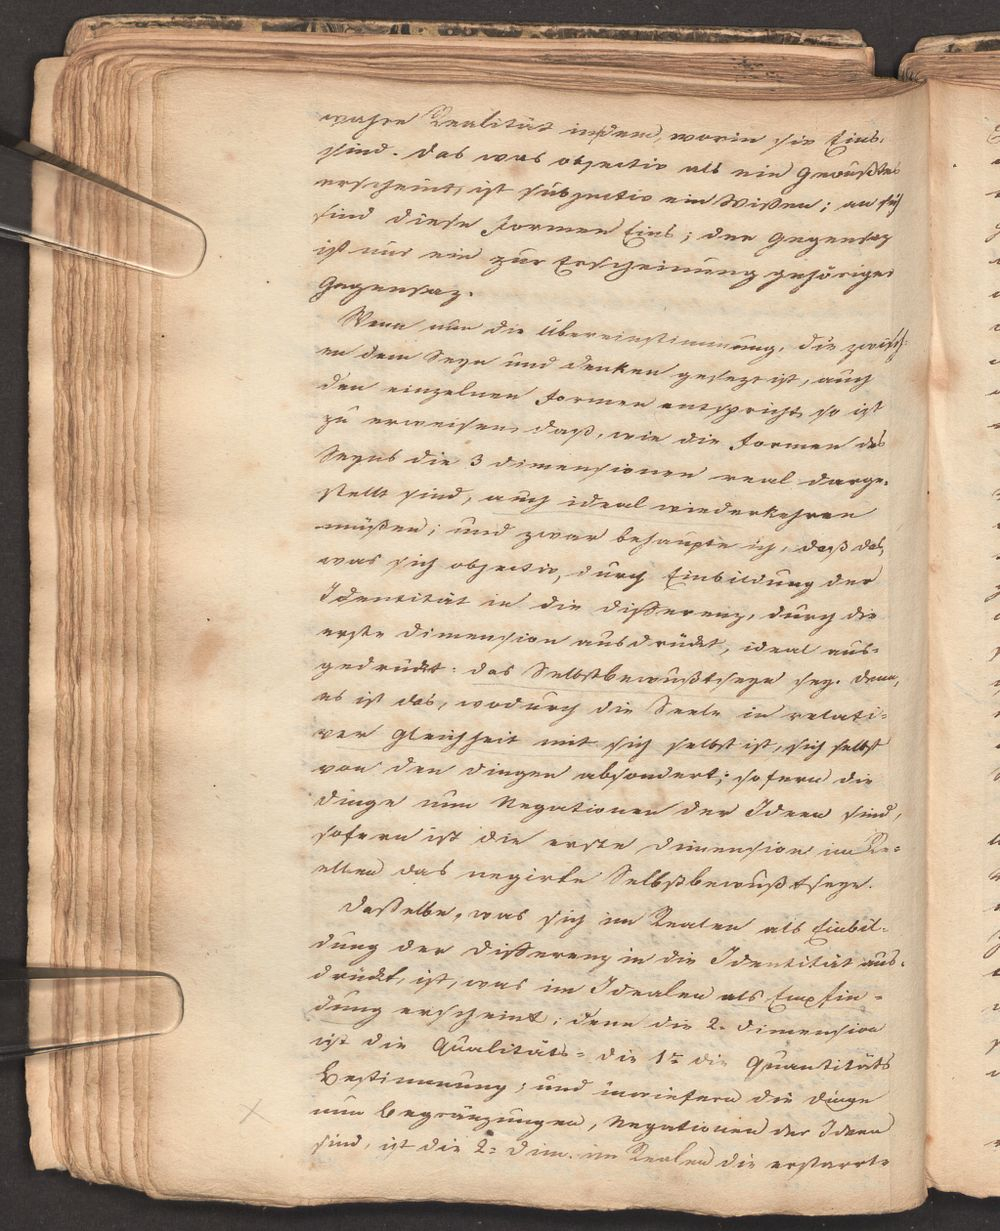 wahre Realität in dem, worin sie Eins.
sind. Das was objectiv als ein Gewußtes
erscheint, ist subjectiv ein Wißen; an sich
sind diese Formen Eins; der Gegensaz
ist nur ein zur Erscheinung gehöriger
Gegensaz.
Wenn nun die Übereinstimmung, die zwisch:
en dem Seyn und Denken gesezt ist, auch
den einzelnen Formen entspricht, so ist
zu erweisen, daß, wie die Formen des
Seyns die 3 Dimensionen real darge-
stellt sind, auch ideal wiederkehren
müßen; und zwar behaupte ich, daß das,
was sich objectiv, durch Einbildung der
Identität in die Differenz, durch die
erste Dimension ausdrükt, ideal aus-
gedrükt: das Selbstbewußtseyn sey. Denn,
es ist das, wodurch die Seele in relati-
ver Gleichheit mit sich selbst ist, sich selbst
von den Dingen absondert; sofern die
Dinge nun Negationen der Ideen sind,
sofern ist die erste Dimension im Re-
ellen das negirte Selbstbewußtseyn.
Dasselbe, was sich im Realen als Einbil-
dung der Differenz in die Identität aus-
drükt, ist, was im Idealen als Empfin-
dung erscheint; denn die 2. Dimension
ist die Qualitäts- die 1te die Quantitäts
Bestimmung; und inwiefern die Dinge
nur Begränzungen, Negationen der Ideen
sind, ist die 2. Dim. im Realen die erstarrte